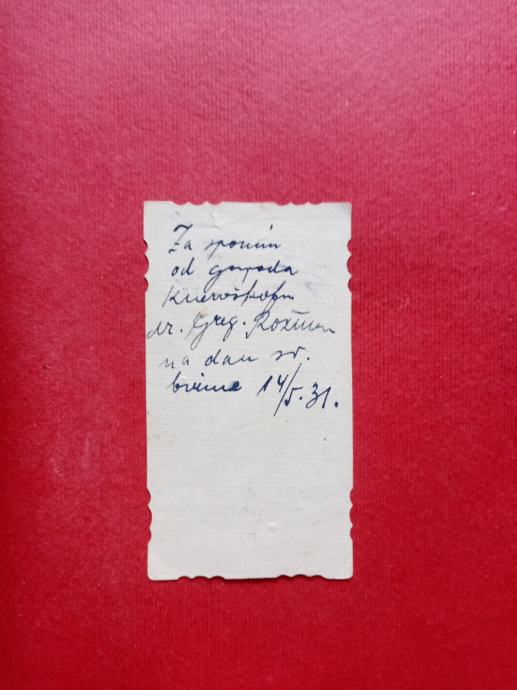 Za spomin
od gospoda
Knezoškofa
dr. Greg. Rožman
na dan sv.
birme 14/5.31.